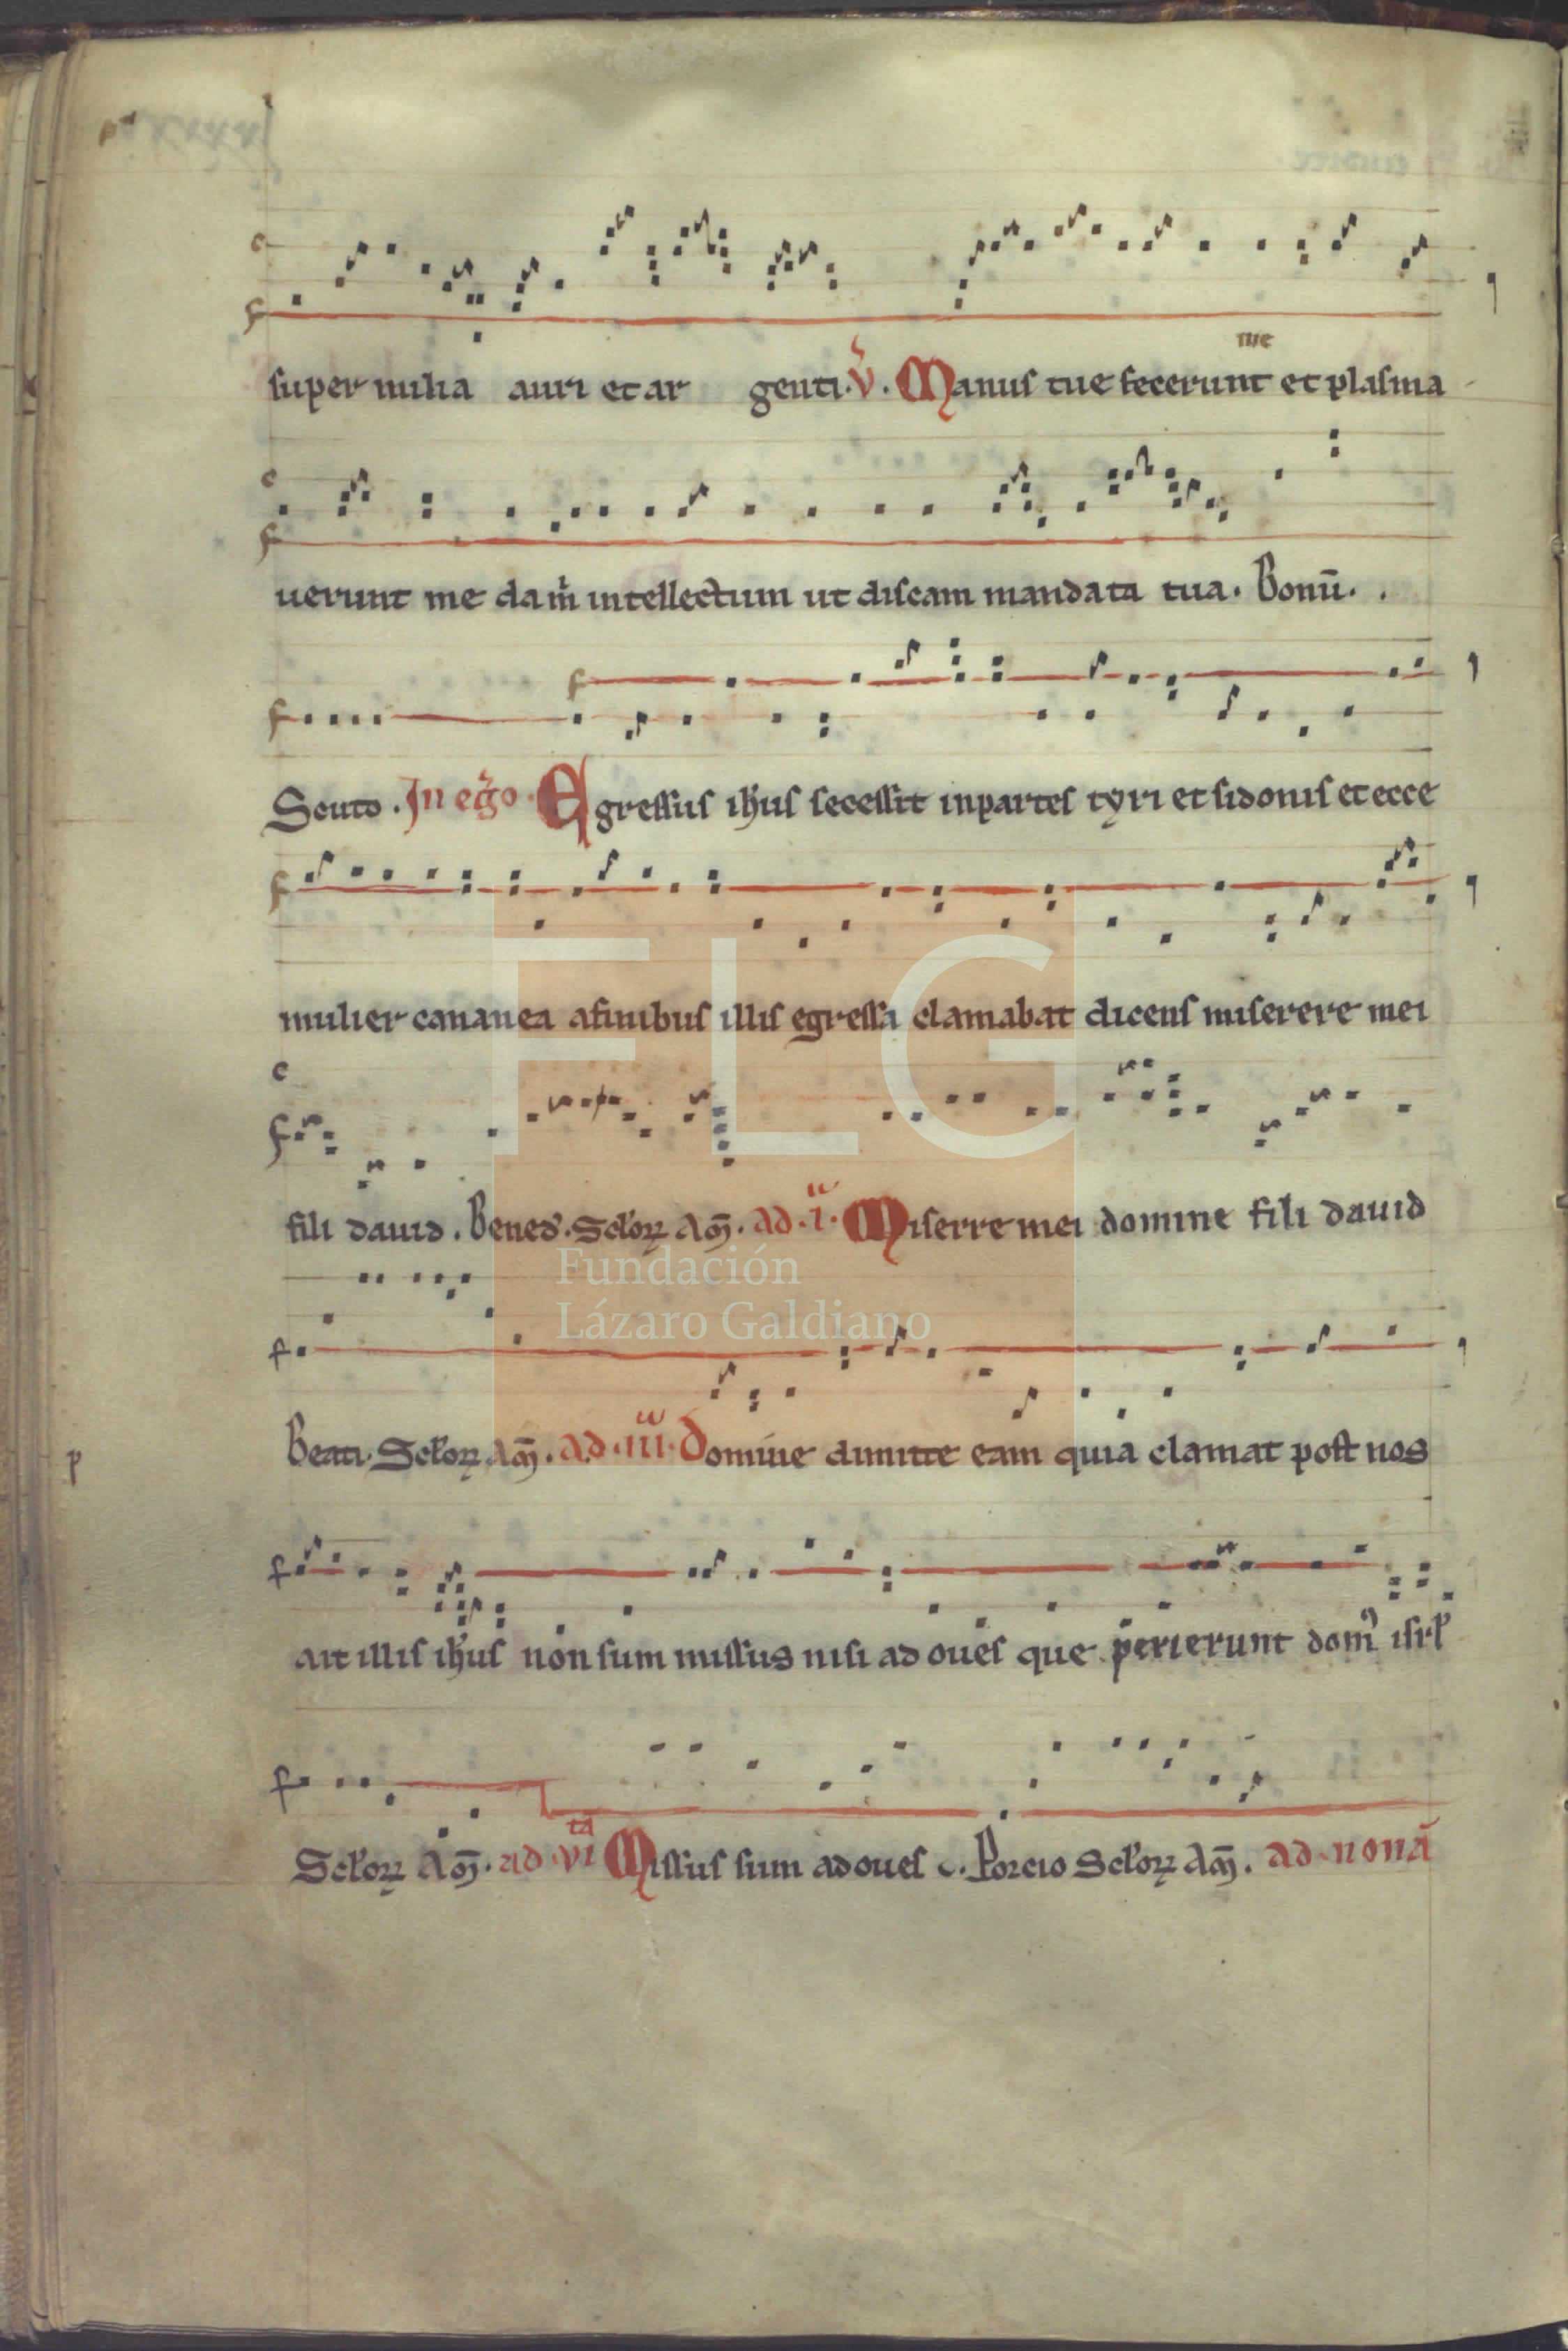 me
super milia auri et ar genti. V. Manus tue fecerunt et plasma
uerunt me da m intellectum ut discam mandata tua. Bonū.
Seuto. In eg̃o Egressus ihus secessit inpartes tyri et sidonis et ecce
mulier cananea afinibus illis egressa clamabat dicens miserere mei
fili dauid. Bened. Sclorꝝ Am̄. ad .i. Miserre mei domine fili dauid
Fundación
Lázaro Galdiano
Beati. Sclorꝝ Am̄. ad .iii. Domine dimitte eam quia clamat post nos
p
ait illis ihus non sum missus nisi ad oues que perierunt dom isrl
Sclorꝝ Am̄. ad vi ta Missus sum ad oues c. Porcio Sclorꝝ Am̄. ad nonā
FLG